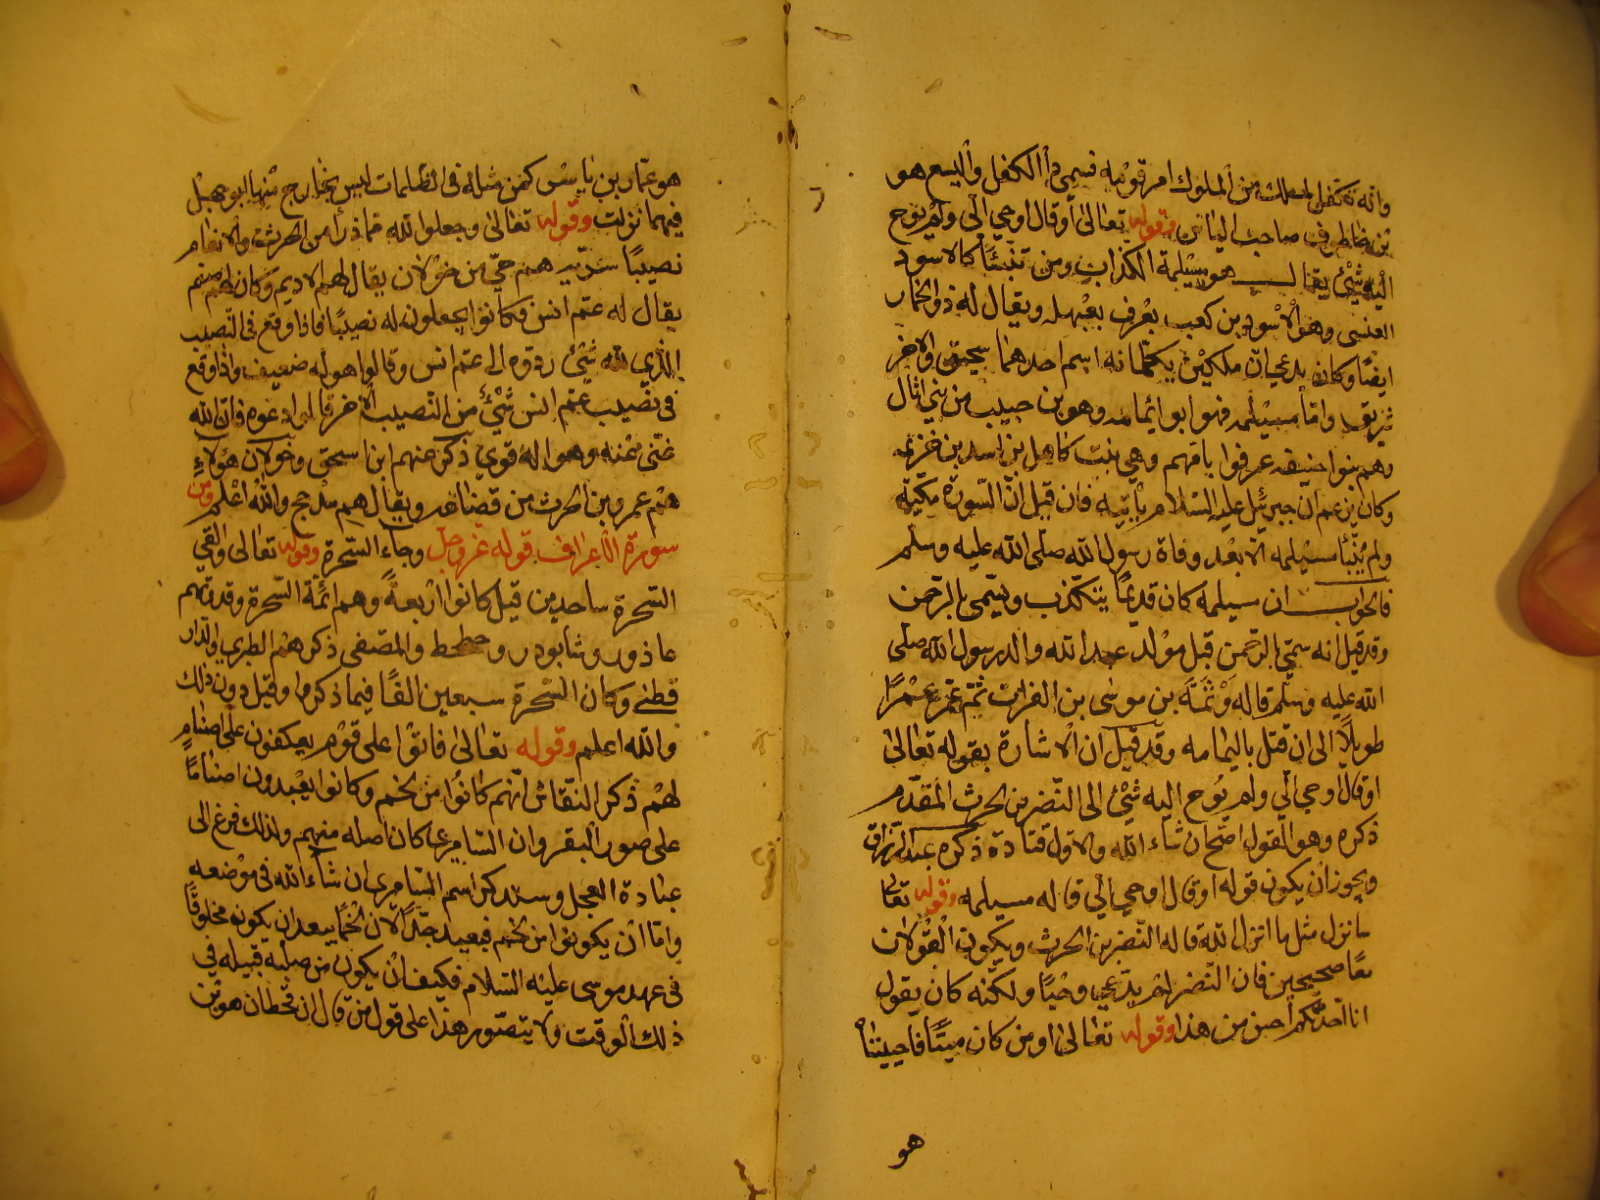 وانه تكفل لملك من الملوك امر قومه فسمى ذا الكفل واليسع هو
بن صاحب الياس وقوله تعالى أوقال اوحي الّي ولم يوح
اليه شئ يقال هو مسيلمة الكذاب ومن تنبّئا كالاسود
العنسى وهو الاسود بن كعب يعرف بعيهله ويقال له ذو الخمار
ايضًا وكان يدعي ان ملكين يكلمانه اسم احدهما سحيق والاخر
شريق وامّا مسيلمه فهو ابو ثمامه وهو بن حبيب من بني اثال
وهم بنوا حنيفه عرفوا بامّهم وهي بنت كاهل بن اسد بن خزيمه
وكان يزعم ان جبرئيل عليه السّلام يأتيه فان قيل انّ السّورة مكّيّه
ولم يُنَبّأ مسيلمه الّا بعد وفاة رسول الله صلّى الله عليه وسلم
فالجواب ان مسيلمه كان قديمًا يتكذّب ويتسمى بالرحمن
وقد قيل انه سمّي بالرّحمن قبل مولد عبد الله والد رسول الله صلّى
الله عليه وسلّم قاله وَثَمَةَ بن موسى بن الفرات ثمّ عمّر عمْرًا
طويلًا الى ان قتل باليمامه وقد قيل ان الاشارة بقوله تعالىٰ
اوقال اوحي الّي ولم يُوح اليه شئ الى النّضر بن الحرث المقدّم
ذكره وهو القول اصّح ان شاء الله والاول قتادة ذكره عبد الرّزاق
ويجوز ان يكون قوله اوقال اوحي الّي قاله مسيلمه وقوله تعالى
سانزل مثل ما انزل الله قاله النّضر بن الحرث ويكون القولان
معًا صحيحين فان النّضر لم يدّعي وحيًا ولكنّه كان يقول
انا احدّثكم احسن من هذا وقوله تعالىٰ اومن كان ميتًا فاحييناه
هو
هو عمّار بن ياسر كمن مثله في الظلمات ليس بخارج منها ابو جهل
فيهما نزلت وقوله تعالىٰ وجعلوا لله مما ذرأ من الحرث والانعام
نصيبًا هم حيّ من خولان يقال لهم الاديم وكان لهم صنم
يقال له عم انس فكانوا يجعلون له نصيبًا فاذا وقع في النّصيب
الّذي لله شئ ردّوه الى عم انس وقالوا هو اله ضعيف واذا وقع
في نصيب عم انس شئ من النّصيب الاخر قالوا دعوه فان الله
غنى عنه وهو اله قوي ذكر عنهم ابن اسحق وخولان هؤلاء
هم عمرو بن الحرث من قضاعه ويقال هم مذحج والله اعلم ومن
سورة الأعراف قوله عزوجل وجاء السّحرة وقوله تعالى والقي
السّحرة ساجدين قيل كانوا اربعةً وهم ائمّة السّحرة وقدوتهم
عاذور وشابور و حطحط والمصفى ذكرهم الطبري والدار
قطني وكان السّحرة سبعين الفًا فيما ذكروا وقيل دون ذلك
والله اعلم وقوله تعالىٰ فاتوا على قوم يعكفون على اصنام
لهم ذكر النقاش انّهم كانُوا من لخم وكانوا يعْبدون اصنامًا
على صور البقر وان السّامري كان اصله منهم ولذلك فزع الى
عبادة العجل وسنذكر اسم السّامري ان شاء الله في موْضعه
وامّا ان يكونوا من لخم فبعيد جدًّا لان لخمًا يبعد ان يكونو مخلوقًا
في عهد موسى عليه السّلام فكيف ان يكون من صلبه قبيله في
ذلك الوقت ولا يتصّور هذا على قول من قال ان قحطان هو بن